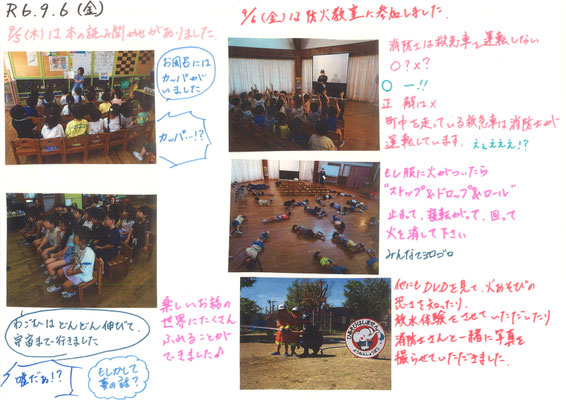 R6.9.6(金)
9/5(木)は本の読み聞かせがありました
お風呂には
カッパがい
いました
カッパ…!?
わごむはどんどん伸びて、
宇宙まで行きました
嘘だぁ!?
もしかして
夢の話?
楽しいお話の
世界にたくさん
ふれることが
できました♪
9/6(金)は防火教室に参加しました。
消防士は救急車を運転しない
○?×?
○ー!!
正解は×
町中を走っている救急車は消防士が
運転しています。
えぇぇぇ!?
もし服に火がついたら
"ストップ&ドロップ&ロール"
止まって、寝転がって、回って
火を消して下さい
みんなでゴロゴロ
他にもDVDを見て、火あそびの
恐さを知ったり、
放水体験をさせていただいたり
消防士さんと一緒に写真を
撮らせていただきました。